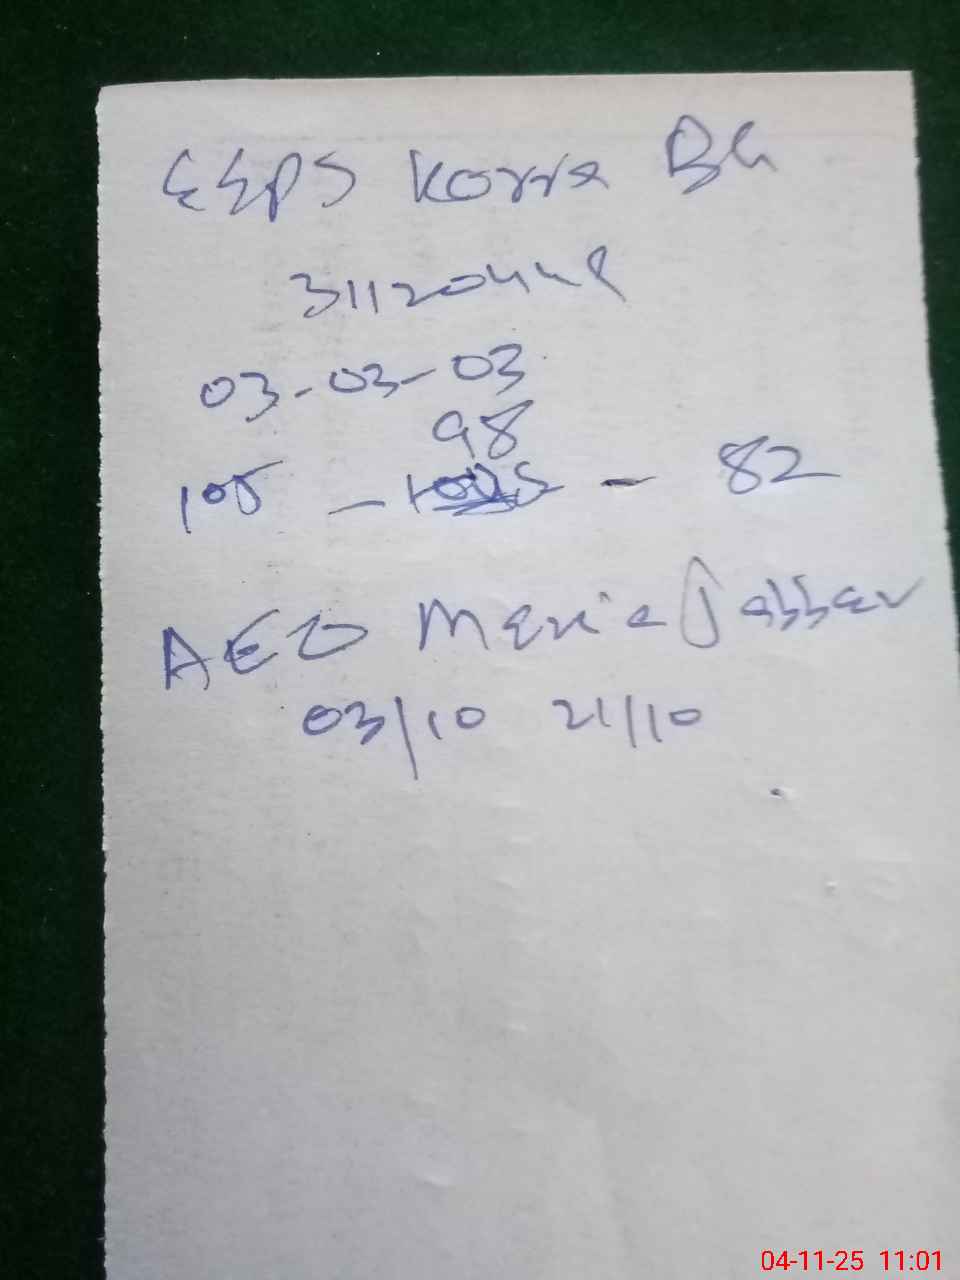 GGPS Korra BG
03-03-03
98
105 - - 82
AEO Maria Jabbar
03/10 21/10
04-11-25 11:01